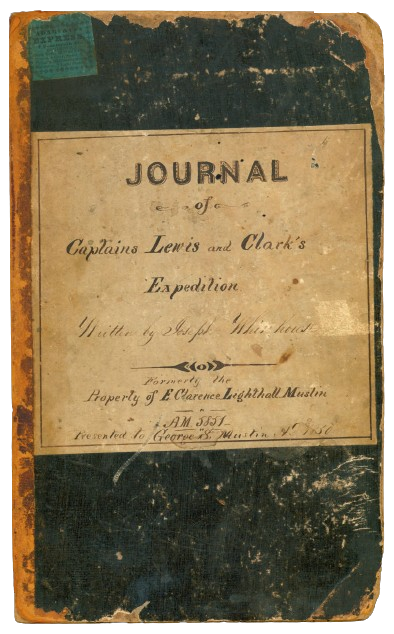 JOURNAL
of
Captains Lewis and Clark's
Expedition
Written by Joseph Whitehouse
Formerly the
Property of E Clarence Leghthall Mustin
A.M. 5851
Presented to George S. Mustin
EXPRESS